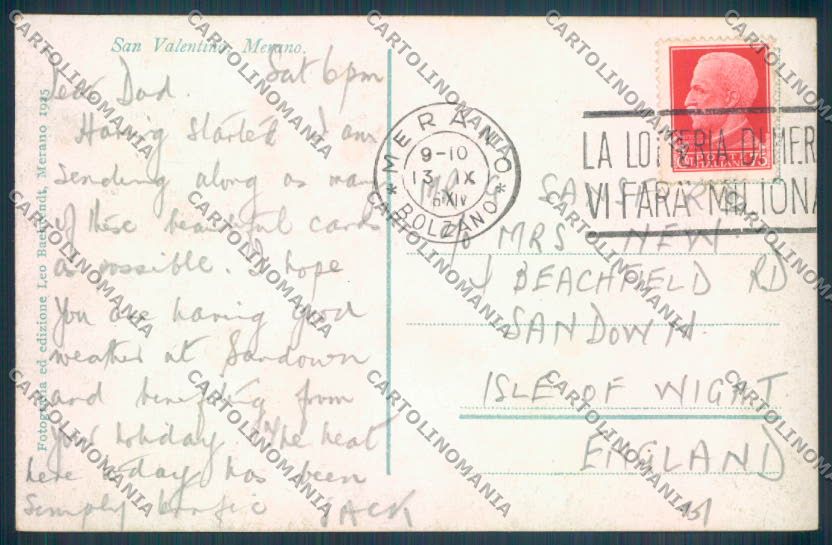 San Valentino, Merano.
Sat 6pm
Dear Dad.
Having started I am
sending along as many
of these beautiful cards
as possible. I hope
you are having good
weather at Sandown
and benefiting from
your holiday. The heat
here today has been
simply terrific JACK
Fotografia ed edizione Leo Baehrendt, Merano 1925
MERANO
9-10
13 IX
XIV
BOLZANO
LA LOTTERIA DI MER
VI FARÀ MILIONA
POSTE
ITALIANE
75
MRS NEW
1 BEACHFIELD RD
SANDOWN
ISLE OF WIGHT
ENGLAND
151
CARTOLINOMANIA